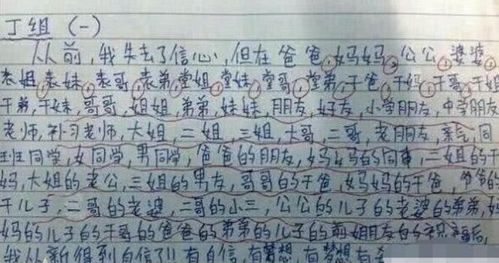 丁组 (一)
从前,我失去了信心,但在爸爸,妈妈,公公,婆婆
表姐,表妹,表哥,表弟,堂姐,堂妹,堂哥,堂弟,干爸,干妈,干哥,干姐
干弟,干妹,哥哥,姐姐,弟弟,妹妹,朋友,好友,小学朋友,中学朋友
老师,补习老师,大姐,二姐,三姐,大哥,二哥,老朋友,亲戚,同
班同学,女同学,男同学,爸爸的朋友,妈妈的同事,二姐的干
妈,大姐的老公,三姐的男友,哥哥的干爸,妈妈的干爸,爷爷的
干儿子,二哥的老婆,二哥的小三,公公的儿子的老婆的弟弟,妈
妈的儿子的干哥的爸爸的弟弟的儿子的前姐夫的祝福后,
我从新得到自信了!! 有自信,有梦想,有梦想有